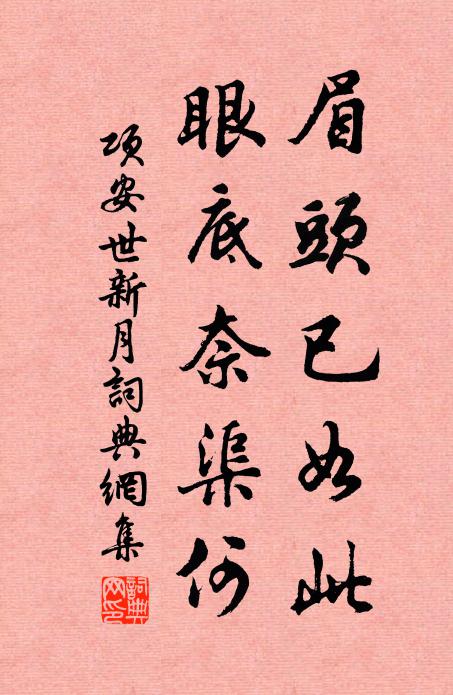 眉頭已如此
眼底奈渠何
項安世新月詞典網集
詞典網印